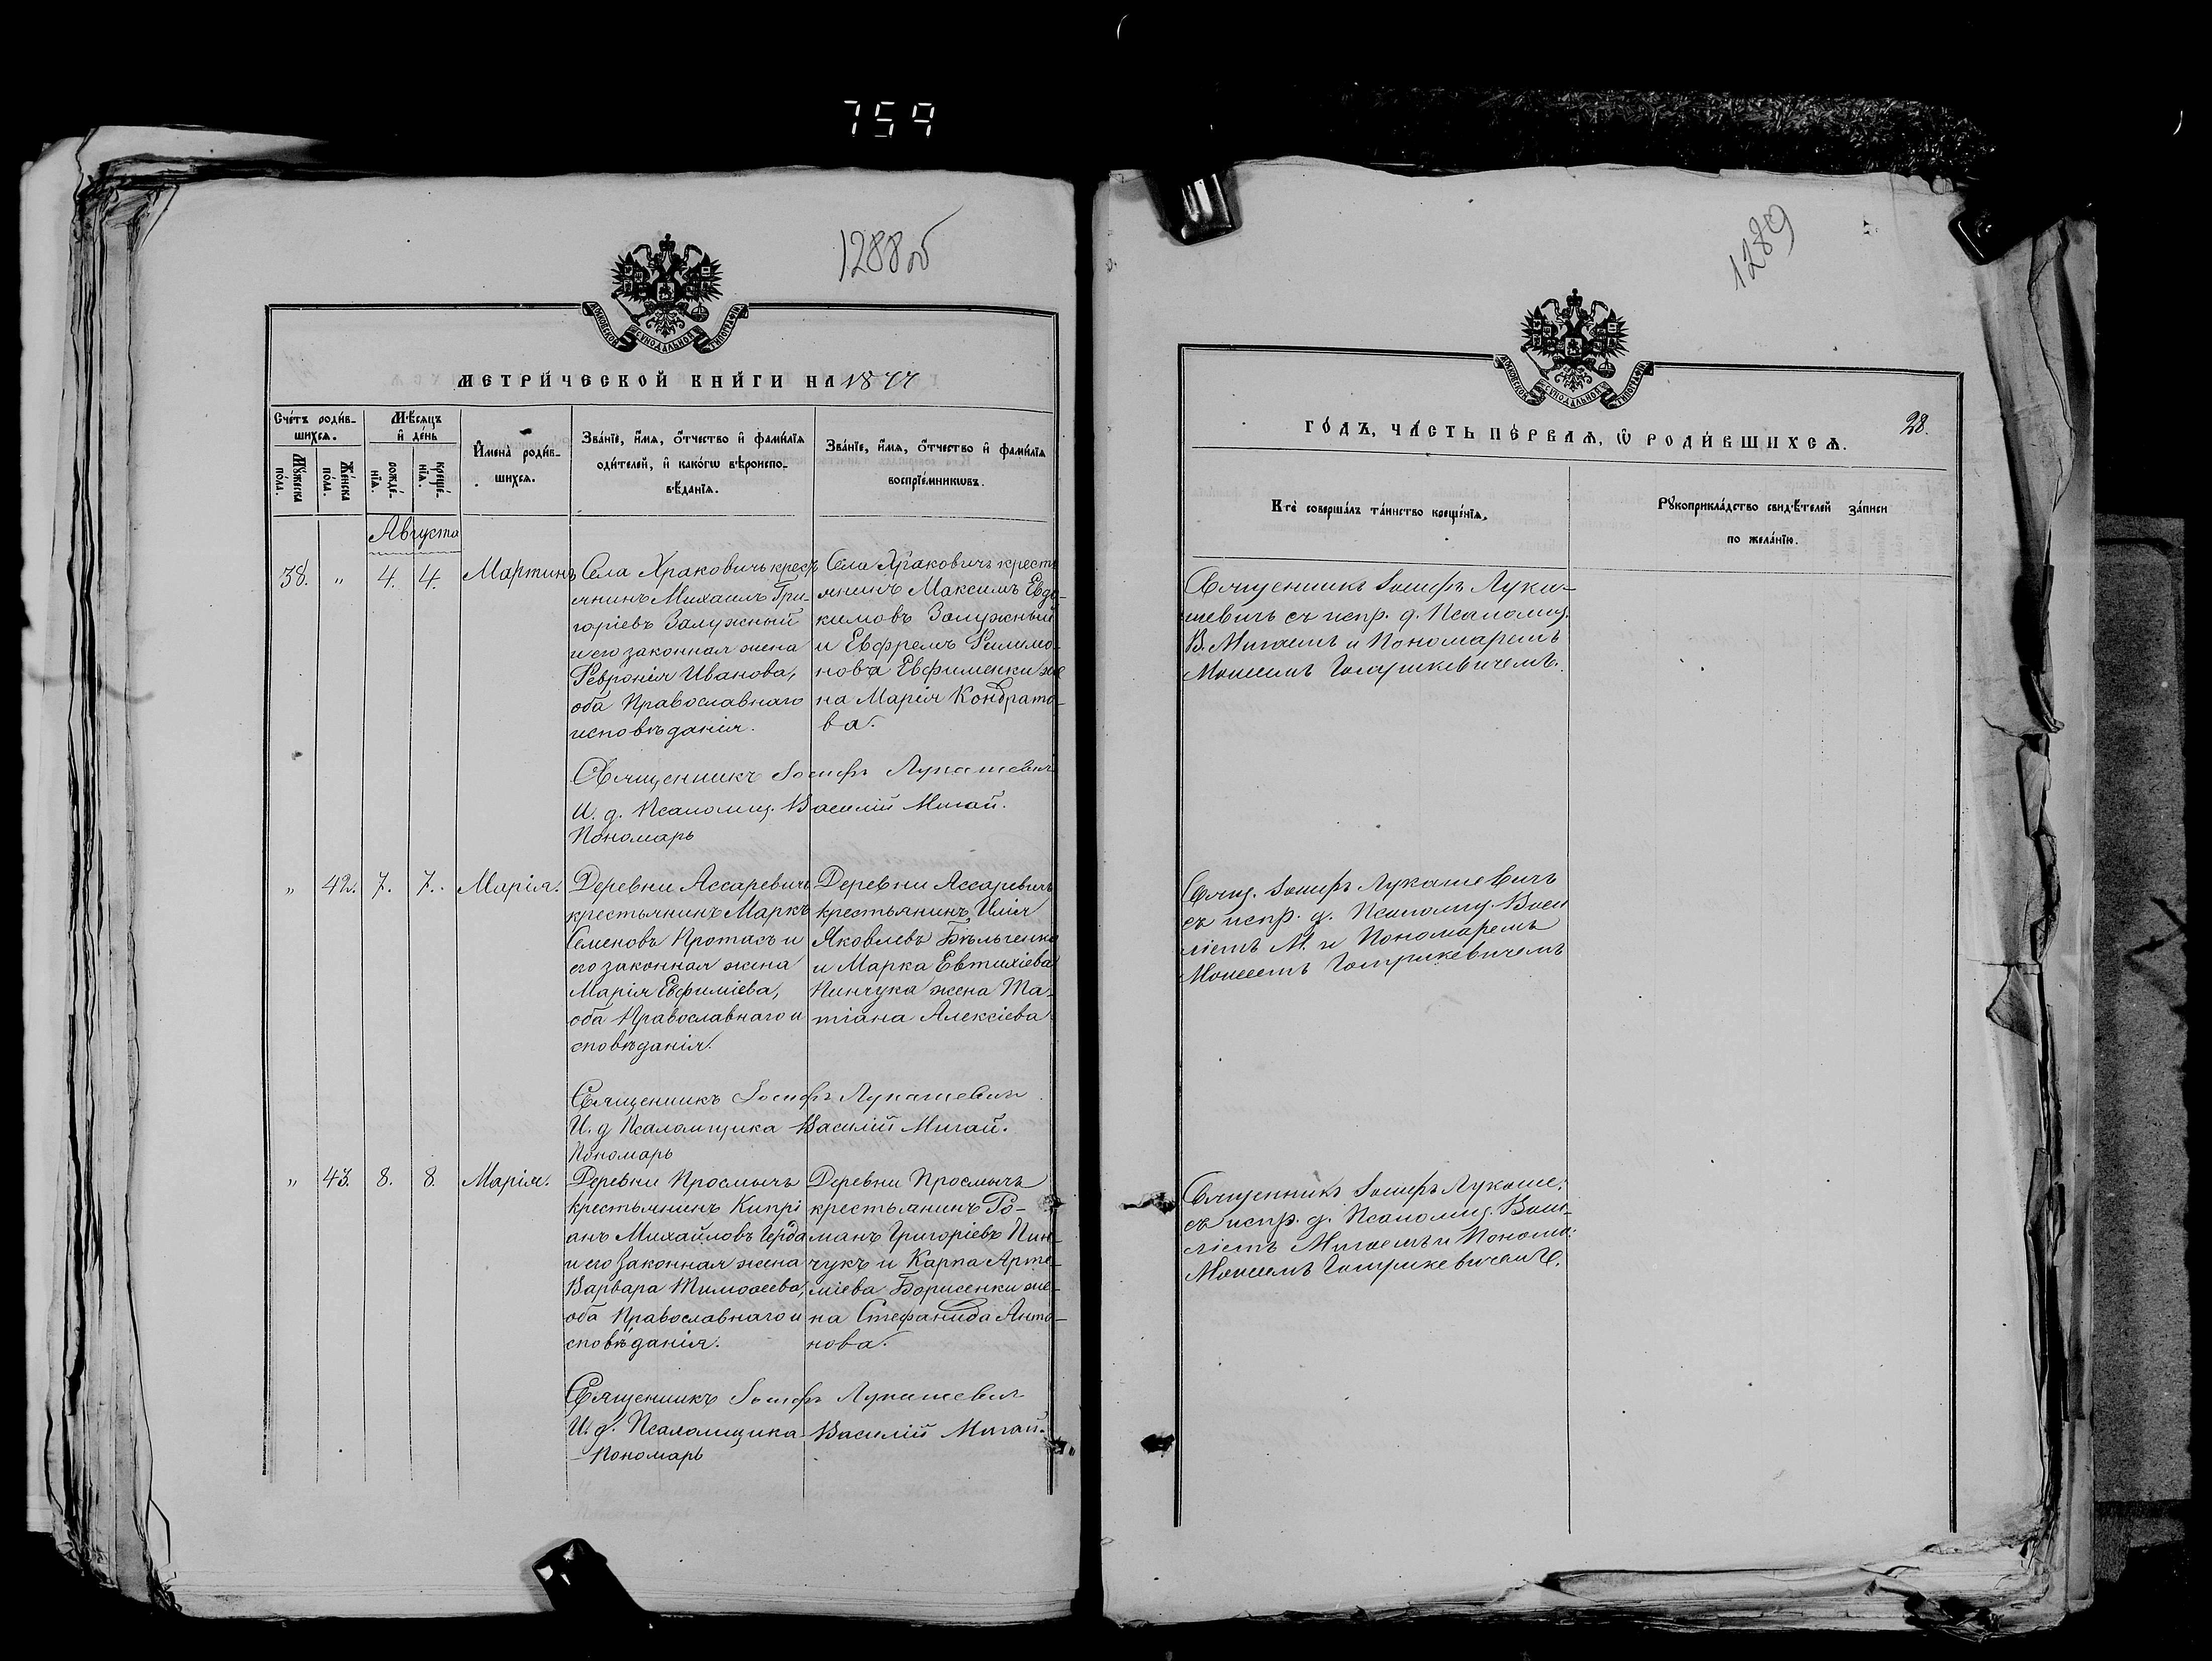 759
1288об
МОСКОВСКОЙ СѴНОДАЛЬНОЙ ТИПОГРАФІИ
МЕТРИ́ЧЕСКОЙ КНИ́ГИ НА 1877
Сче́тъ роди́в-
шихсѧ.
Мꙋ́жеска по́ла.
Же́нска по́ла.
Мѣ́сѧцъ
и҆ де́нь
рожде́-
нїѧ.
креще́-
нїѧ.
И҆мена̀ роди́в-
шихсѧ.
Зва́нїе, и҆́мѧ, ѻ҆́тчество и҆ фами́лїѧ
роди́телей, и҆ како́гѡ вѣроиспо-
вѣ́данїѧ.
Зва́нїе, и҆́мѧ, ѻ҆́тчество и҆ фами́лїѧ
воспрїе́мникѡвъ.
Августа
38. " 4. 4. Мартинъ
Села Храковичъ крестъ
янинъ Михаилъ Гри-
горіевъ Залужный
и его законная жена
Февронія Иванова,
оба Православнаго
исповѣданія.
Села Храковичъ кресть
янинъ Максимъ Евдо-
кимовъ Залужный
и Евфремъ Филимо-
нова Евфименки же
на Марія Кондрато-
ва.
Священникъ Іосифъ Лукашевичъ
И. д. Псаломщ. Василій Мигай.
Пономарь
" 42. 7. 7. Марія.
Деревни Ассаревичъ
крестьянинъ Маркъ
Семеновъ Протасъ и
его законная жена
Марія Евфиміева,
оба Православнаго и
сповѣданія.
Деревни Ассаревичъ
крестьянинъ Илія
Яковлевъ Бѣльченко
и Марка Евтихіева
Пинчука жена Та-
тіана Алексіева
Священникъ Іосифъ Лукашевичъ
И. д Псаломщика Василій Мигай.
Пономарь
" 43. 8. 8. Марія.
Деревни Просмычъ
крестьянинъ Кипрі
анъ Михайловъ Герда
и его законная жена
Варвара Тимоѳеева,
оба Православнаго и
сповѣданія.
Деревни Просмычъ
крестьянинъ Ро-
манъ Григоріевъ Пин-
чукъ и Карпа Арте-
міева Борисенки же-
на Стефанида Анто-
нова.
Священникъ Іосифъ Лукашевичъ
И. д. Псаломщика Василій Мигай.
Пономарь
1289
МОСКОВСКОЙ СѴНОДАЛЬНОЙ ТИПОГРАФІИ
ГО́ДЪ, ЧА́СТЬ ПЕ́РВАѦ, Ѡ҆ РОДИ́ВШИХСѦ.
28.
Кто̀ соверша́лъ та́инство креще́нїѧ.
Рꙋкоприкла́дство свидѣ́телей за́писи
по жела́нїю.
Священникъ Іосифъ Лука-
шевичъ съ испр. д. Псаломщ.
В. Мигаемъ и Пономаремъ
Моисеемъ
Свящ. Іосифъ Лукашевичъ
съ испр. д. Псаломщ. Васи
ліемъ М. и Пономаремъ
Моисеемъ
Священникъ Іосифъ Лукаше.
съ испр. д. Псаломщ. Васи-
ліемъ Мигаемъ и Понома.
Моисеемъ